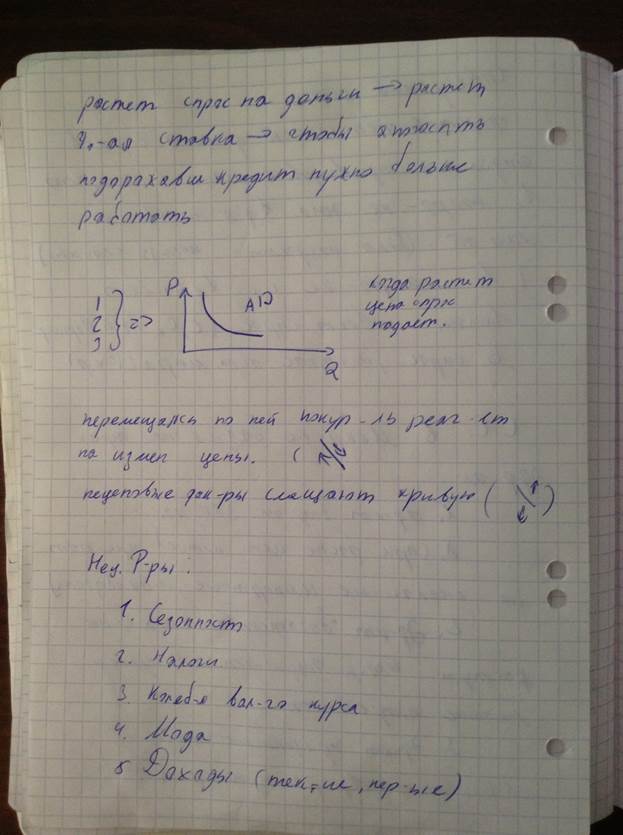 растет спрос на деньги → растет
%-ая ставка → чтобы
подорожавш кредит нужно больше
работать
1
2
3
} =>
P
AD
Q
когда растет
цена спрос
падает.
перемещаясь по ней покуп-ль реаг-ет
на измен цены. (
неценовые фак-ры смещают кривую ( )
Нец. Р-ры.
1. Сезонность
2. Налоги
3. Колеб-я вал-го курса
4. Мода
5 Доходы (тек-ие, пер-ые)